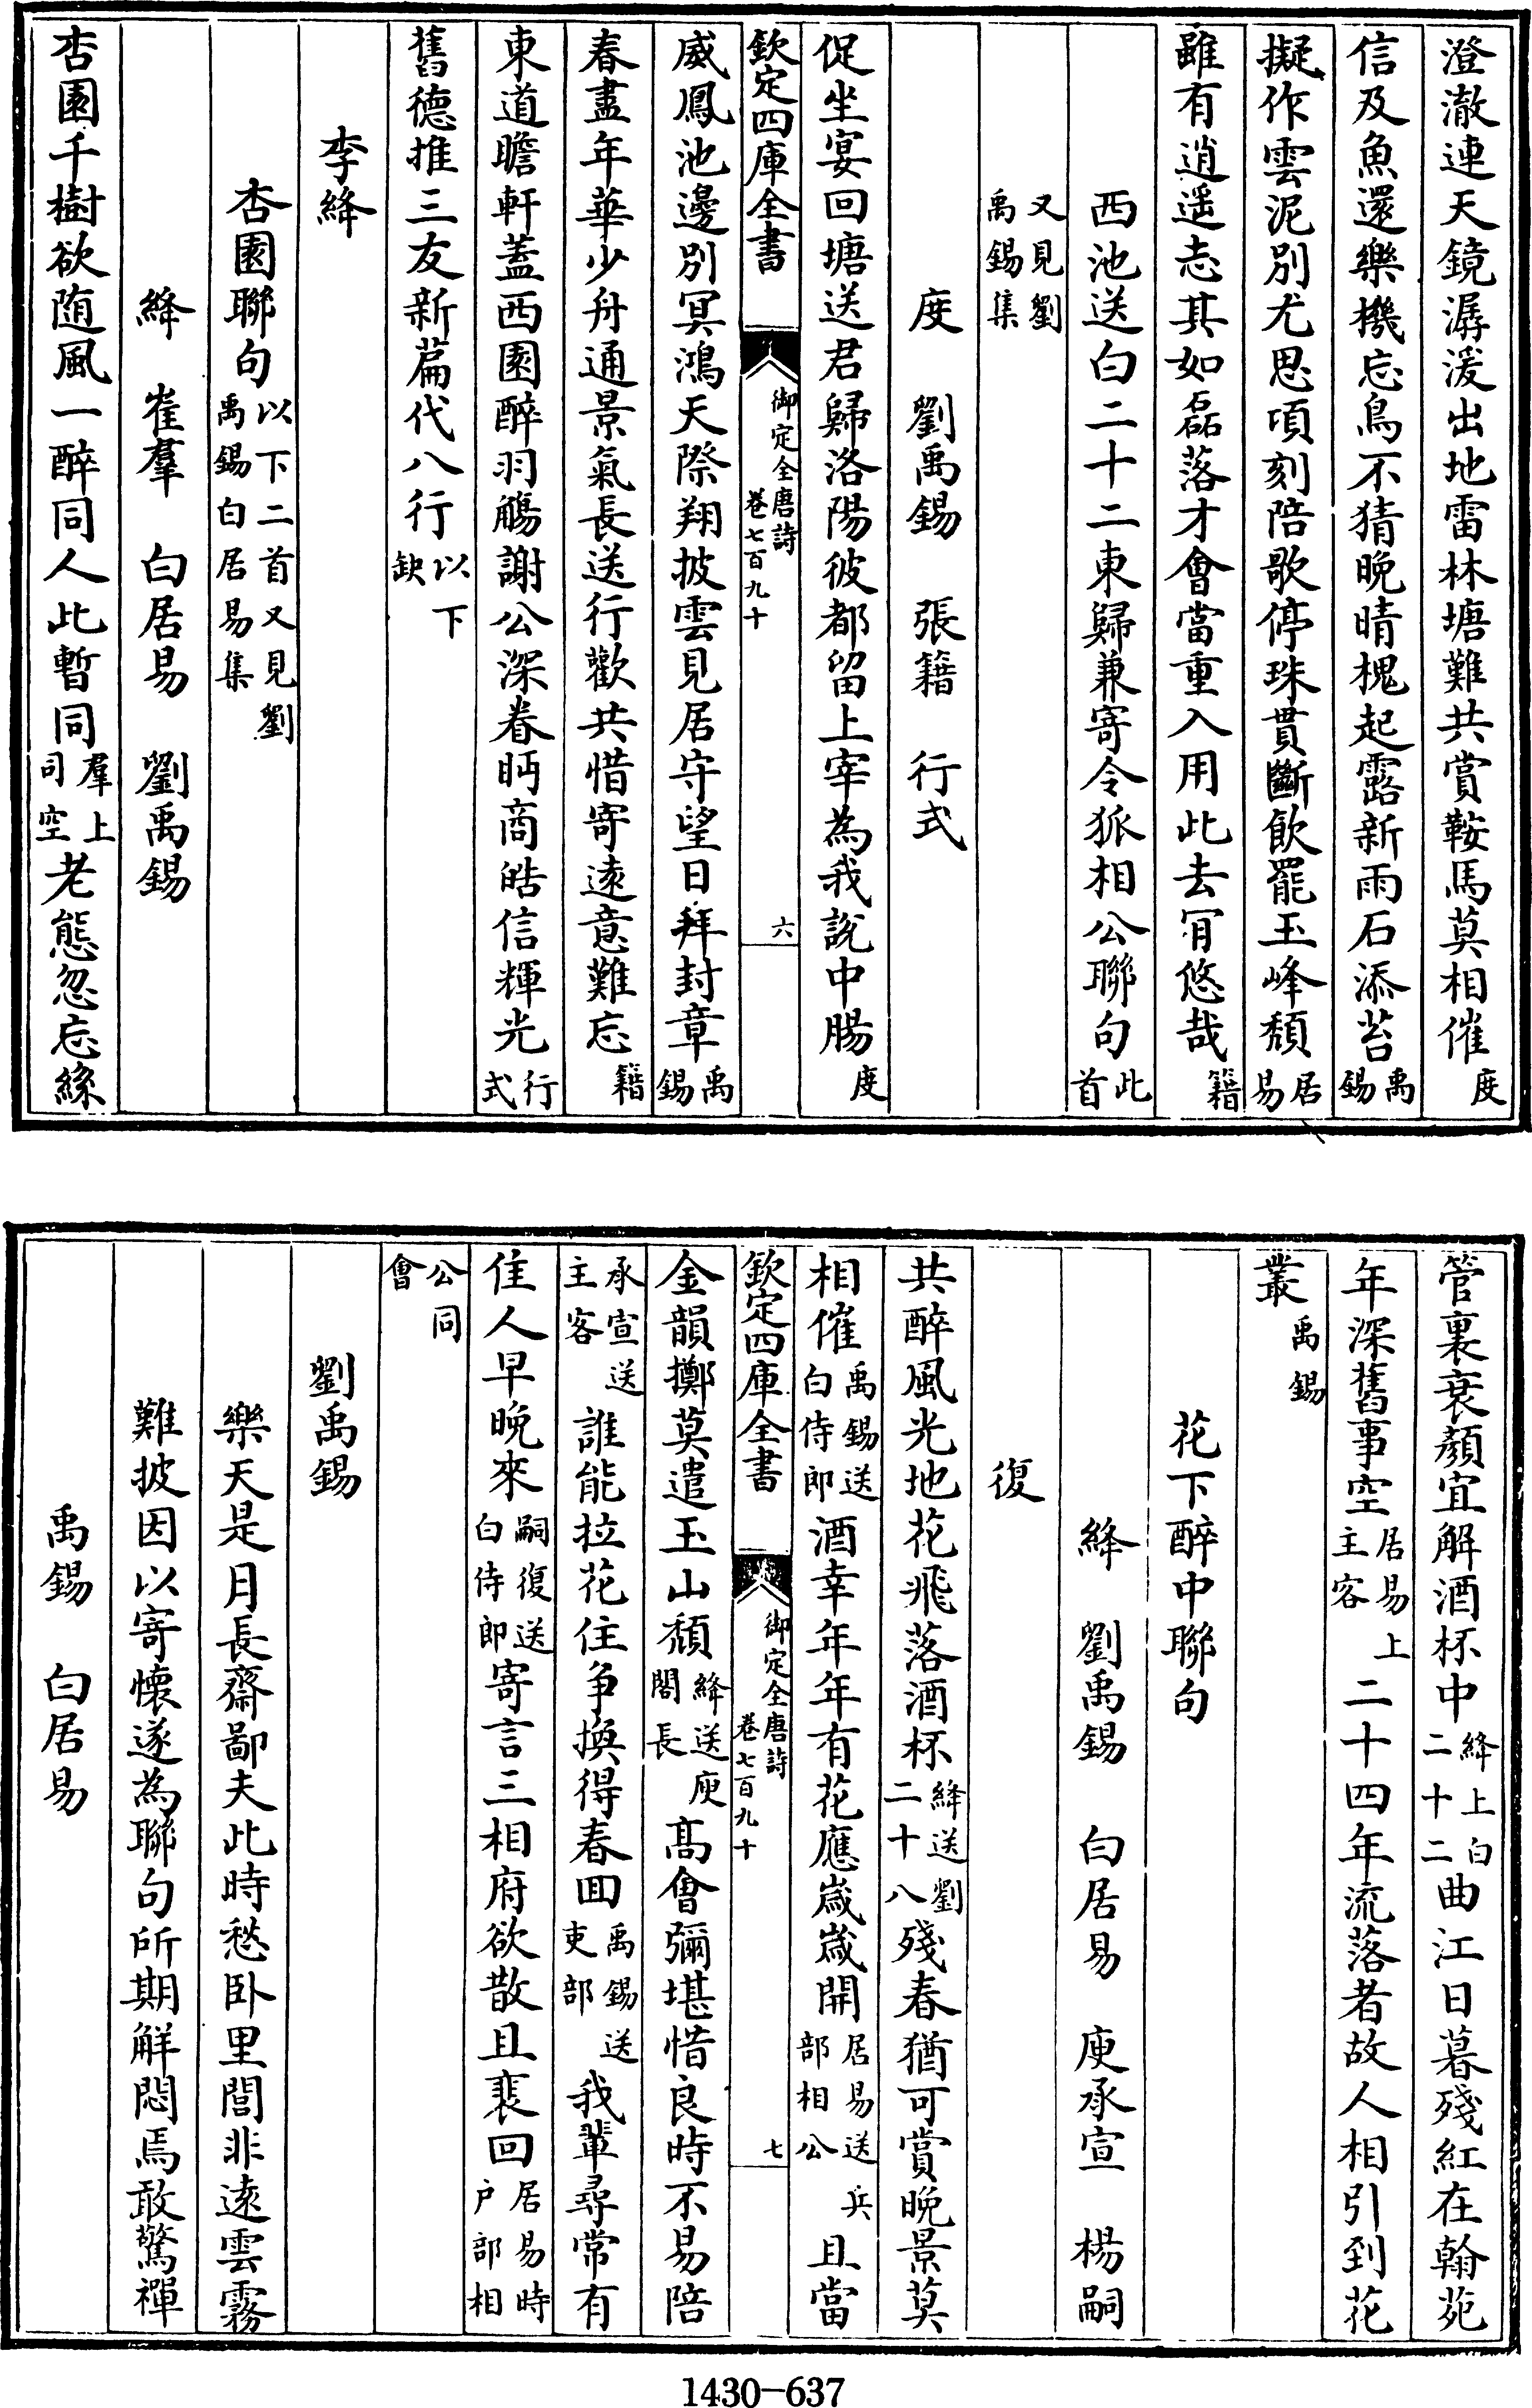 澄澈連天鏡潺湲出地雷林塘難共賞鞍馬莫相催度
信及魚還樂機忘鳥不猜晚晴槐起露新雨石添苔禹錫
擬作雲泥別尤思頃刻陪歌停珠貫斷飲罷玉峰頹居易
雖有逍遥志其如磊落才會當重入用此去肎悠哉籍
西池送白二十二東歸兼寄令狐相公聯句此首
又見劉禹錫集
度 劉禹錫 張籍 行式
促坐宴回塘送君歸洛陽彼都留上宰為我說中腸度
欽定四庫全書 御定全唐詩 卷七百九十 六
威鳳池邊別冥鴻天際翔披雲見居守望日拜封章禹錫
春盡年華少舟通景氣長送行歡共惜寄遠意難忘籍
東道瞻軒蓋西園醉羽觴謝公深眷眄商皓信輝光行式
舊德推三友新篇代八行以下缺
李絳
杏園聯句以下二首又見劉禹錫白居易集
絳 崔羣 白居易 劉禹錫
杏園千樹欲随風一醉同人此暫同羣上司空老態忽忘絲
管裏衰顏宜解酒杯中絳上白二十二曲江日暮殘紅在翰苑
年深舊事空居易上主客二十四年流落者故人相引到花
叢禹錫
花下醉中聯句
絳 劉禹錫 白居易 庾承宣 楊嗣
復
共醉風光地花飛落酒杯絳送劉二十八殘春猶可賞晚景莫
相催禹錫送白侍郎酒幸年年有花應歲歲開居易送兵部相公且當
欽定四庫全書 御定全唐詩 卷七百九十 七
金韻擲莫遣玉山頹絳送庾閣長髙會彌堪惜良時不易陪
承宣送主客誰能拉花住争換得春囬禹錫送吏部我輩尋常有
佳人早晚來嗣復送白侍郎寄言三相府欲散且裵回居易時户部相
公同會
劉禹錫
樂天是月長齋鄙夫此時愁卧里閭非遠雲霧
難披因以寄懷遂為聯句所期解悶焉敢驚禪
禹錫 白居易
1430-637